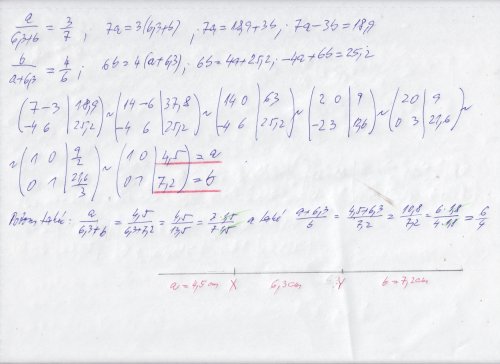 a/(6,3+b) = 3/7 ; 7a = 3(6,3+b) , 7a = 18,9+3b, · 7a-3b = 18,9
b/(a+6,3) = 4/6 ; 6b = 4(a+6,3) ; 6b = 4a+25,2 ; -4a+6b = 25,2
(7 -3 | 18,9 ; -4 6 | 25,2) ~ (14 -6 | 37,8 ; -4 6 | 25,2) ~ (14 0 | 63 ; -4 6 | 25,2) ~ (2 0 | 9 ; -2 3 | 12,6) ~ (2 0 | 9 ; 0 3 | 21,6) ~
~ (1 0 | 9/2 ; 0 1 | 21,6/3) ~ (1 0 | 4,5 ; 0 1 | 7,2) = a = b
také: a/(6,3+b) = 4,5/(6,3+7,2) = 4,5/13,5 = a také (a+6,3)/b = (4,5+6,3)/7,2 = 10,8/7,2 = 6·1,8/4·1,8 = 6/4
a = 4,5 cm X 6,3 cm Y b = 7,2 cm